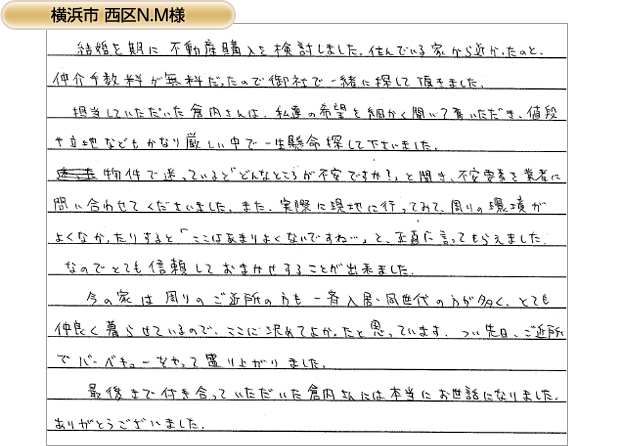 横浜市 西区N.M様
結婚を期に不動産購入を検討しました。住んでいる家から近かったのと、
仲介手数料が無料だったので御社で一緒に探して頂きました。
担当していただいた倉内さんは、私達の希望を細かく聞いて頂いただき、値段
や立地などもかなり厳しい中で一生懸命探して下さいました。
物件で迷っていると「どんなところが不安ですか?」と聞き、不安要素を業者に
問い合わせてくださいました。また、実際に現地に行ってみて、周りの環境が
よくなかったりすると「ここはあまりよくないですね…」と、正直に言ってもらえました。
なのでとても信頼しておまかせすることが出来ました。
今の家は周りのご近所の方も一斉入居・同世代の方が多く、とても
仲良く暮らせているので、ここに決めてよかったと思っています。つい先日、ご近所
でバーベキューをやって盛り上がりました。
最後まで付き合っていただいた倉内さんには本当にお世話になりました。
ありがとうございました。